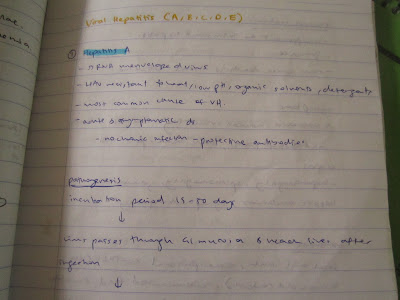 Viral Hepatitis (A, B, C, D, E)
① Hepatitis A
- RNA nonenveloped virus
- resistant to heat / low pH, organic solvents, detergents
- most common cause of VH.
- acute & symptomatic ds
- no chronic infection - protective antibodies
pathogenesis
incubation period 15-50 days
↓
virus passes through GI mucosa & reach liver after
ingestion
↓